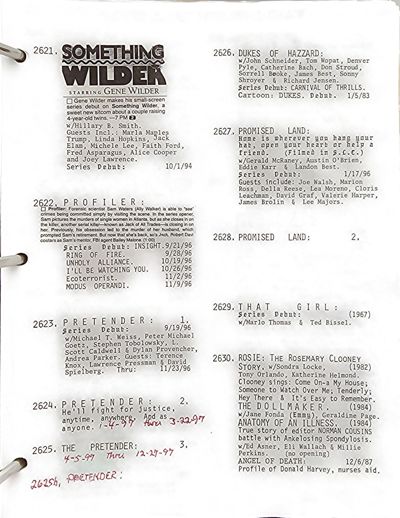 2621.
SOMETHING
WILDER
STARRING GENE WILDER
Gene Wilder makes his small-screen
series debut on Something Wilder, a
sweet new sitcom about a couple raising
4-year-old twins. —7 PM 2
w/Hillary B. Smith.
Guests Incl: Marla Maples
Trump, Linda Hopkins, Jack
Elam, Michele Lee, Faith Ford,
Fred Asparagus, Alice Cooper
and Joey Lawrence.
Series Debut: 10/1/94
2622. PROFILER:
Profiler: Forensic scientist Sam Waters (Ally Walker) is able to "see"
crimes being committed simply by visiting the scene. In the series opener,
Sam pictures the murders of single women in Atlanta, but as she closes in on
the killer, another serial killer—known as Jack of All Trades—is closing in on
her. Previously, his obsession led to the murder of her husband, which
prompted Sam's retirement. But now that she's back, so's Jack. Robert Davi
costars as Sam's mentor, FBI agent Bailey Malone. (1:00)
Series Debut: INSIGHT. 9/21/96
RING OF FIRE. 9/28/96
UNHOLY ALLIANCE. 10/19/96
I'LL BE WATCHING YOU. 10/26/96
Ecoterrorist. 11/2/96
MODUS OPERANDI. 11/9/96
2623. PRETENDER: 1.
Series Debut: 9/19/96
w/Michael T. Weiss, Peter Michael
Goetz, Stephen Tobolowsky, L.
Scott Caldwell & Dylan Provencher,
Andrea Parker. Guests: Terence
Knox, Lawrence Pressman & David
Spielberg. Thru: 11/23/96
2624. PRETENDER: 2.
He'll fight for justice,
anytime, anywhere. And as
anyone. 1-4-97 thru 3-22-97
2625. THE PRETENDER: 3.
4-5-97 Thru 12-27-97
2625A, PRETENDER:
2626. DUKES OF HAZZARD:
w/John Schneider, Tom Wopat, Denver
Pyle, Catherine Bach, Don Stroud,
Sorrell Booke, James Best, Sonny
Shroyer & Richard Jensen.
Series Debut: CARNIVAL OF THRILLS.
Cartoon: DUKES. Debut. 1/5/83
2627. PROMISED LAND:
Home is wherever you hang your
hat, open your heart or help a
friend. (Filmed in S.L.C.)
w/Gerald McRaney, Austin O'Brien,
Eddie Karr & Landon Best.
Series Debut: 1/17/96
Guests include: Joe Walsh, Marion
Ross, Della Reese, Lea Moreno, Cloris
Leachman, David Graf, Valerie Harper,
James Brolin & Lee Majors.
2628. PROMISED LAND: 2.
2629. THAT GIRL:
Series Debut: (1967)
w/Marlo Thomas & Ted Bissel.
2630. ROSIE: THE ROSEMARY CLOONEY
STORY. w/Sondra Locke, (1982)
Tony Orlando, Katherine Helmond.
Clooney sings: Come On-a My House;
Someone to Watch Over Me; Tenderly;
Hey There & It's Easy to Remember.
THE DOLLMAKER. (1984)
w/Jane Fonda (Emmy), Geraldine Page.
ANATOMY OF AN ILLNESS. (1984)
True story of editor NORMAN COUSINS
battle with Ankelosing Spondylosis.
w/Ed Asner, Eli Wallach & Millie
Perkins. (no opening)
ANGEL OF DEATH: 12/6/87
Profile of Donald Harvey, nurses aid.